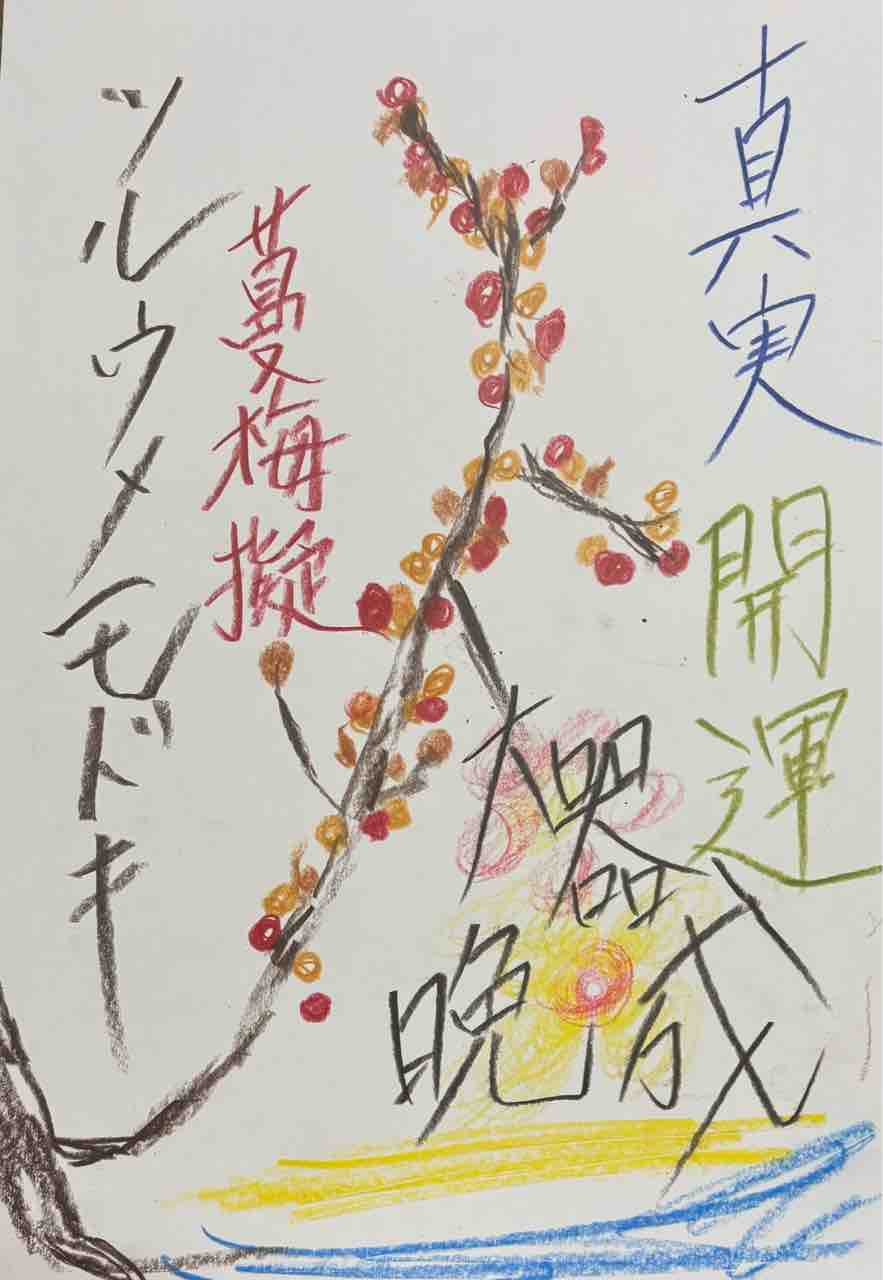 真実
開運
大器
晩成
蔓梅擬
ツルウメモドキ